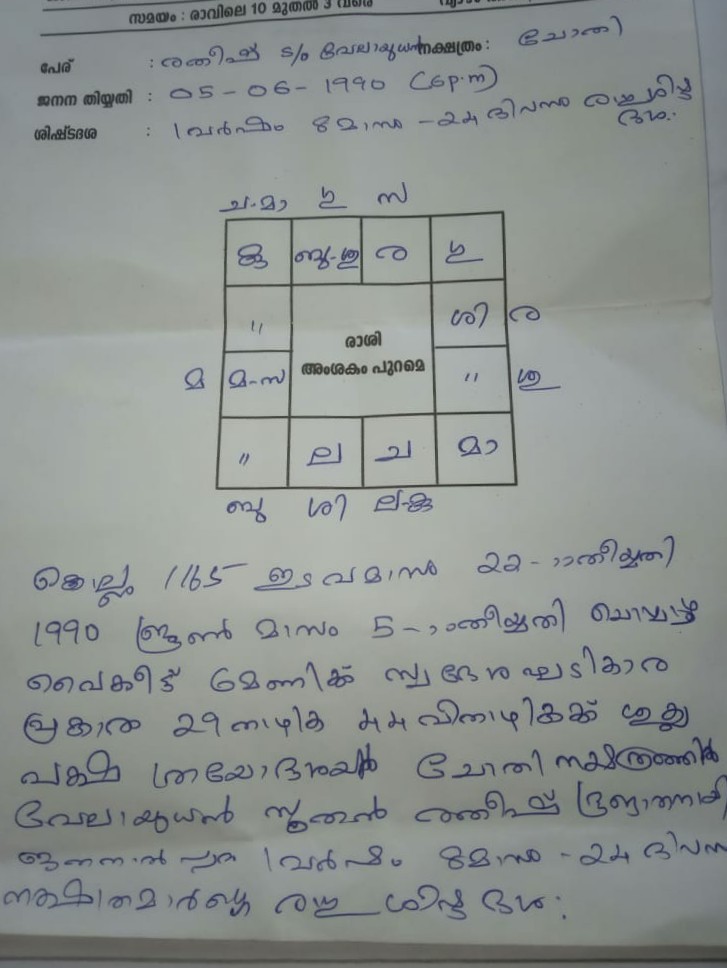 സമയം : രാവിലെ 10 മുതൽ 3 വരെ
പേര് : രതീഷ് S/o വേലായുധൻ നക്ഷത്രം : ചോതി
ജനന തിയ്യതി : 05-06-1990 (6p.m)
ശിഷ്ടദശ : 1 വർഷം 8 മാസം - 24 ദിവസം രാഹു ശിഷ്ട
ദശ.
ച-മാ ഗു സ
കു ബു-ശു ര ഗു
" ശി ര
രാശി
അംശകം പുറമെ
മ മ-സ " ശു
" ല ച മാ
ബു ശി ല-കു
കൊല്ലം 1165 ഇടവമാസം 22-ാംതീയ്യതി
1990 ജൂൺ മാസം 5-ാംതീയ്യതി ചൊവ്വാഴ്ച
വൈകീട്ട് 6മണിക്ക് സ്വദേശഘടികാര
പ്രകാരം 29 നാഴിക 44 വിനാഴികക്ക് ശുക്ല
പക്ഷ ത്രയോദശിയിൽ ചോതി നക്ഷത്രത്തിൽ
വേലായുധൻ സുതൻ രതീഷ്
1വർഷം 8മാസം - 24 ദിവസം
രാഹു ശിഷ്ട ദശ: